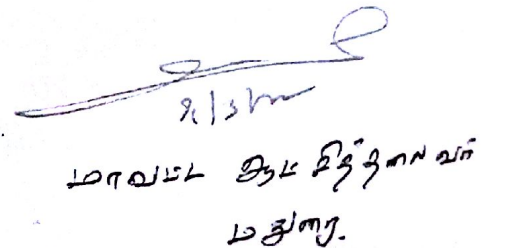 மாவட்ட ஆட்சித்தலைவர்
மதுரை.